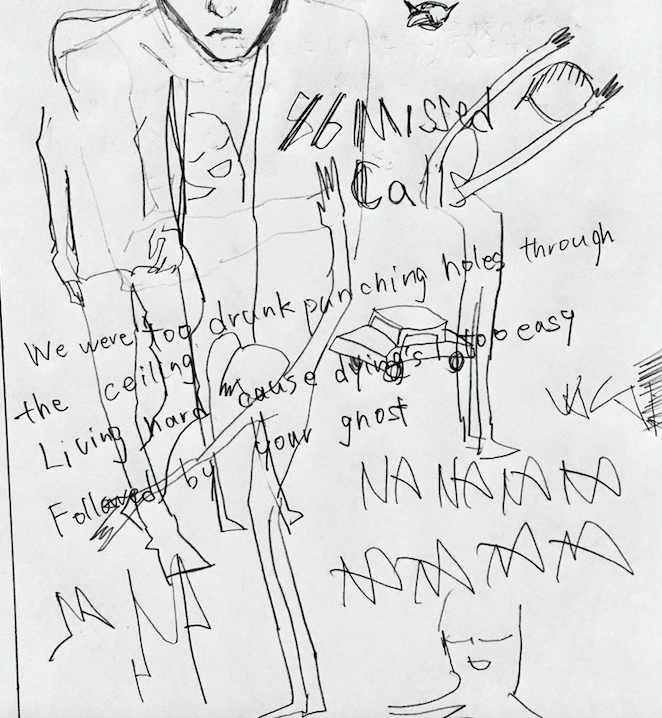 86 Missed
Calls
We were too drunk punching holes through
the ceiling
Living hard cause dying's too easy
Followed by your ghost
NA NA NA NA
NA NA NA NA
NA NA